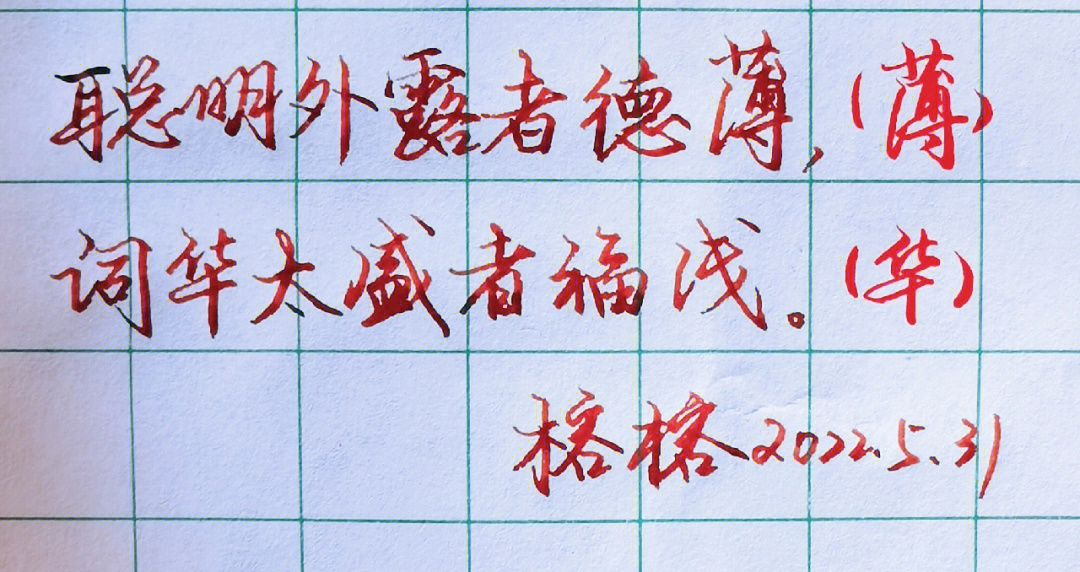 聪明外露者德薄，（薄）
词华太盛者福浅。（华）
榕榕2022.5.31